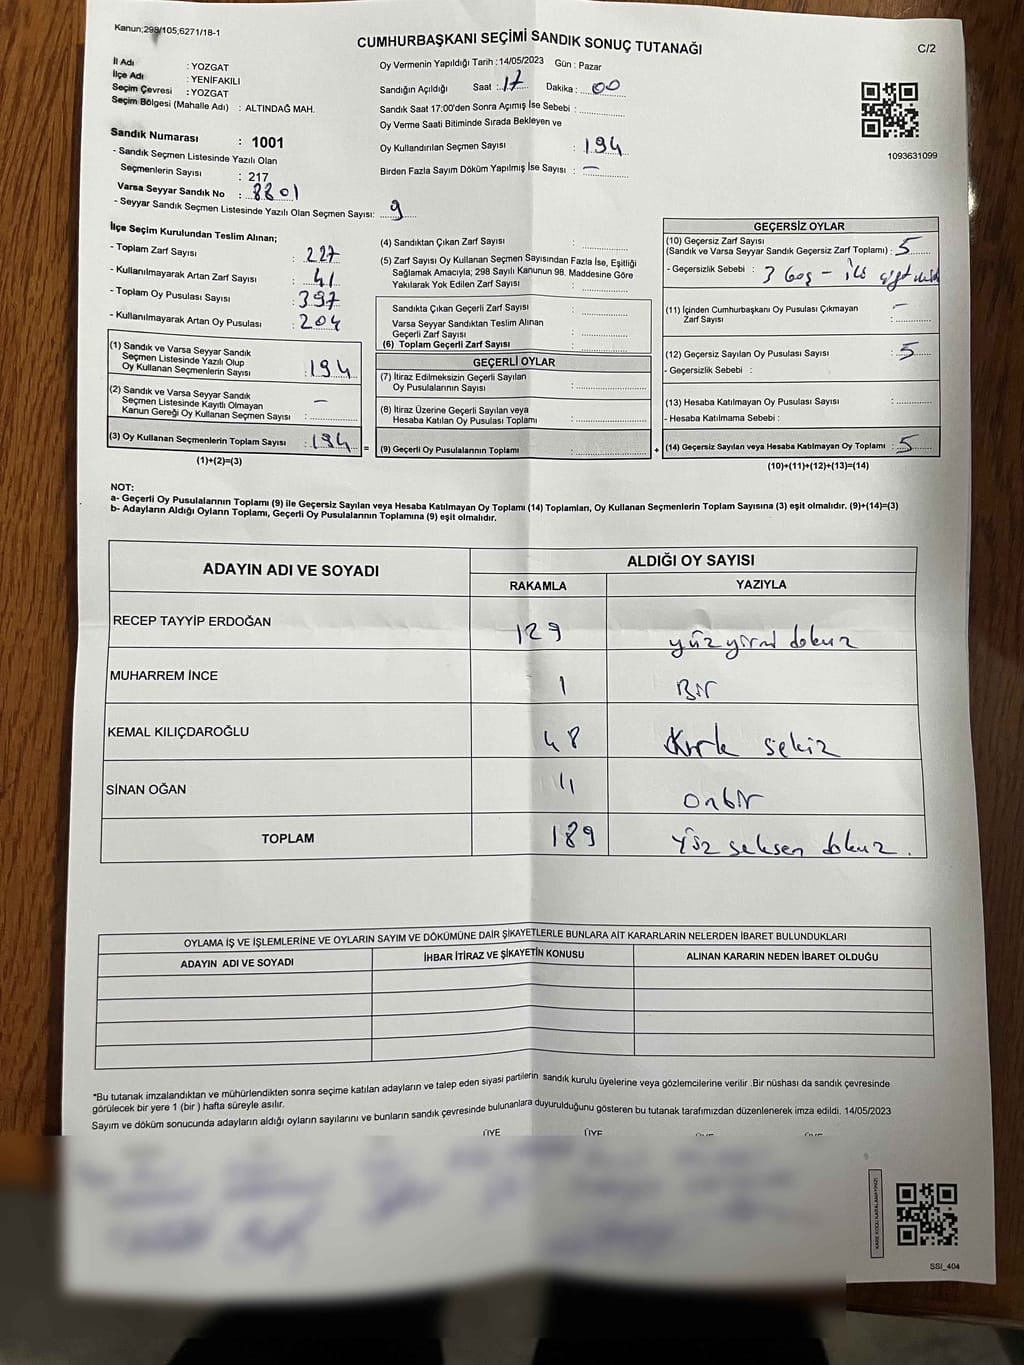 Kanun;298/105;6271/18-1
CUMHURBAŞKANI SEÇİMİ SANDIK SONUÇ TUTANAĞI
C/2
İl Adı : YOZGAT
İlçe Adı : YENİFAKILI
Seçim Çevresi : YOZGAT
Seçim Bölgesi (Mahalle Adı) : ALTINDAĞ MAH.
Sandık Numarası : 1001
- Sandık Seçmen Listesinde Yazılı Olan
Seçmenlerin Sayısı : 217
Varsa Seyyar Sandık No : 8801
- Seyyar Sandık Seçmen Listesinde Yazılı Olan Seçmen Sayısı: 9
Oy Vermenin Yapıldığı Tarih :14/05/2023 Gün : Pazar
Sandığın Açıldığı Saat : 17 Dakika : 00
Sandık Saat 17:00'den Sonra Açımış İse Sebebi :
Oy Verme Saati Bitiminde Sırada Bekleyen ve
Oy Kullandırılan Seçmen Sayısı : 194
Birden Fazla Sayım Döküm Yapılmış İse Sayısı : —
1093631099
İlçe Seçim Kurulundan Teslim Alınan;
- Toplam Zarf Sayısı : 227
- Kullanılmayarak Artan Zarf Sayısı : 41
- Toplam Oy Pusulası Sayısı : 397
- Kullanılmayarak Artan Oy Pusulası : 204
(1) Sandık ve Varsa Seyyar Sandık
Seçmen Listesinde Yazılı Olup
Oy Kullanan Seçmenlerin Sayısı : 194
(2) Sandık ve Varsa Seyyar Sandık
Seçmen Listesinde Kayıtlı Olmayan
Kanun Gereği Oy Kullanan Seçmen Sayısı : —
(3) Oy Kullanan Seçmenlerin Toplam Sayısı : 194 =
(1)+(2)=(3)
(4) Sandıktan Çıkan Zarf Sayısı :
(5) Zarf Sayısı Oy Kullanan Seçmen Sayısından Fazla İse, Eşitliği
Sağlamak Amacıyla; 298 Sayılı Kanunun 98. Maddesine Göre
Yakılarak Yok Edilen Zarf Sayısı :
Sandıkta Çıkan Geçerli Zarf Sayısı :
Varsa Seyyar Sandıktan Teslim Alınan
Geçerli Zarf Sayısı :
(6) Toplam Geçerli Zarf Sayısı :
GEÇERLİ OYLAR
(7) İtiraz Edilmeksizin Geçerli Sayılan
Oy Pusulalarının Sayısı :
(8) İtiraz Üzerine Geçerli Sayılan veya
Hesaba Katılan Oy Pusulası Toplamı :
(9) Geçerli Oy Pusulalarının Toplamı : +
GEÇERSİZ OYLAR
(10) Geçersiz Zarf Sayısı
(Sandık ve Varsa Seyyar Sandık Geçersiz Zarf Toplamı) : 5
- Geçersizlik Sebebi : 3 boş -
(11) İçinden Cumhurbaşkanı Oy Pusulası Çıkmayan
Zarf Sayısı : —
(12) Geçersiz Sayılan Oy Pusulası Sayısı : 5
- Geçersizlik Sebebi :
(13) Hesaba Katılmayan Oy Pusulası Sayısı :
- Hesaba Katılmama Sebebi :
(14) Geçersiz Sayılan veya Hesaba Katılmayan Oy Toplamı : 5
(10)+(11)+(12)+(13)=(14)
NOT:
a- Geçerli Oy Pusulalarının Toplamı (9) ile Geçersiz Sayılan veya Hesaba Katılmayan Oy Toplamı (14) Toplamları, Oy Kullanan Seçmenlerin Toplam Sayısına (3) eşit olmalıdır. (9)+(14)=(3)
b- Adayların Aldığı Oyların Toplamı, Geçerli Oy Pusulalarının Toplamına (9) eşit olmalıdır.
ADAYIN ADI VE SOYADI
ALDIĞI OY SAYISI
RAKAMLA YAZIYLA
RECEP TAYYİP ERDOĞAN 129 yüzyirmi dokuz
MUHARREM İNCE 1 Bir
KEMAL KILIÇDAROĞLU 48 Kırk sekiz
SİNAN OĞAN 11 onbir
TOPLAM 189 Yüz seksen dokuz.
OYLAMA İŞ VE İŞLEMLERİNE VE OYLARIN SAYIM VE DÖKÜMÜNE DAİR ŞİKAYETLERLE BUNLARA AİT KARARLARIN NELERDEN İBARET BULUNDUKLARI
ADAYIN ADI VE SOYADI İHBAR İTİRAZ VE ŞİKAYETİN KONUSU ALINAN KARARIN NEDEN İBARET OLDUĞU
*Bu tutanak imzalandıktan ve mühürlendikten sonra seçime katılan adayların ve talep eden siyasi partilerin sandık kurulu üyelerine veya gözlemcilerine verilir .Bir nüshası da sandık çevresinde
görülecek bir yere 1 (bir ) hafta süreyle asılır.
Sayım ve döküm sonucunda adayların aldığı oyların sayılarını ve bunların sandık çevresinde bulunanlara duyurulduğunu gösteren bu tutanak tarafımızdan düzenlenerek imza edildi. 14/05/2023
ÜYE ÜYE
SSI_404